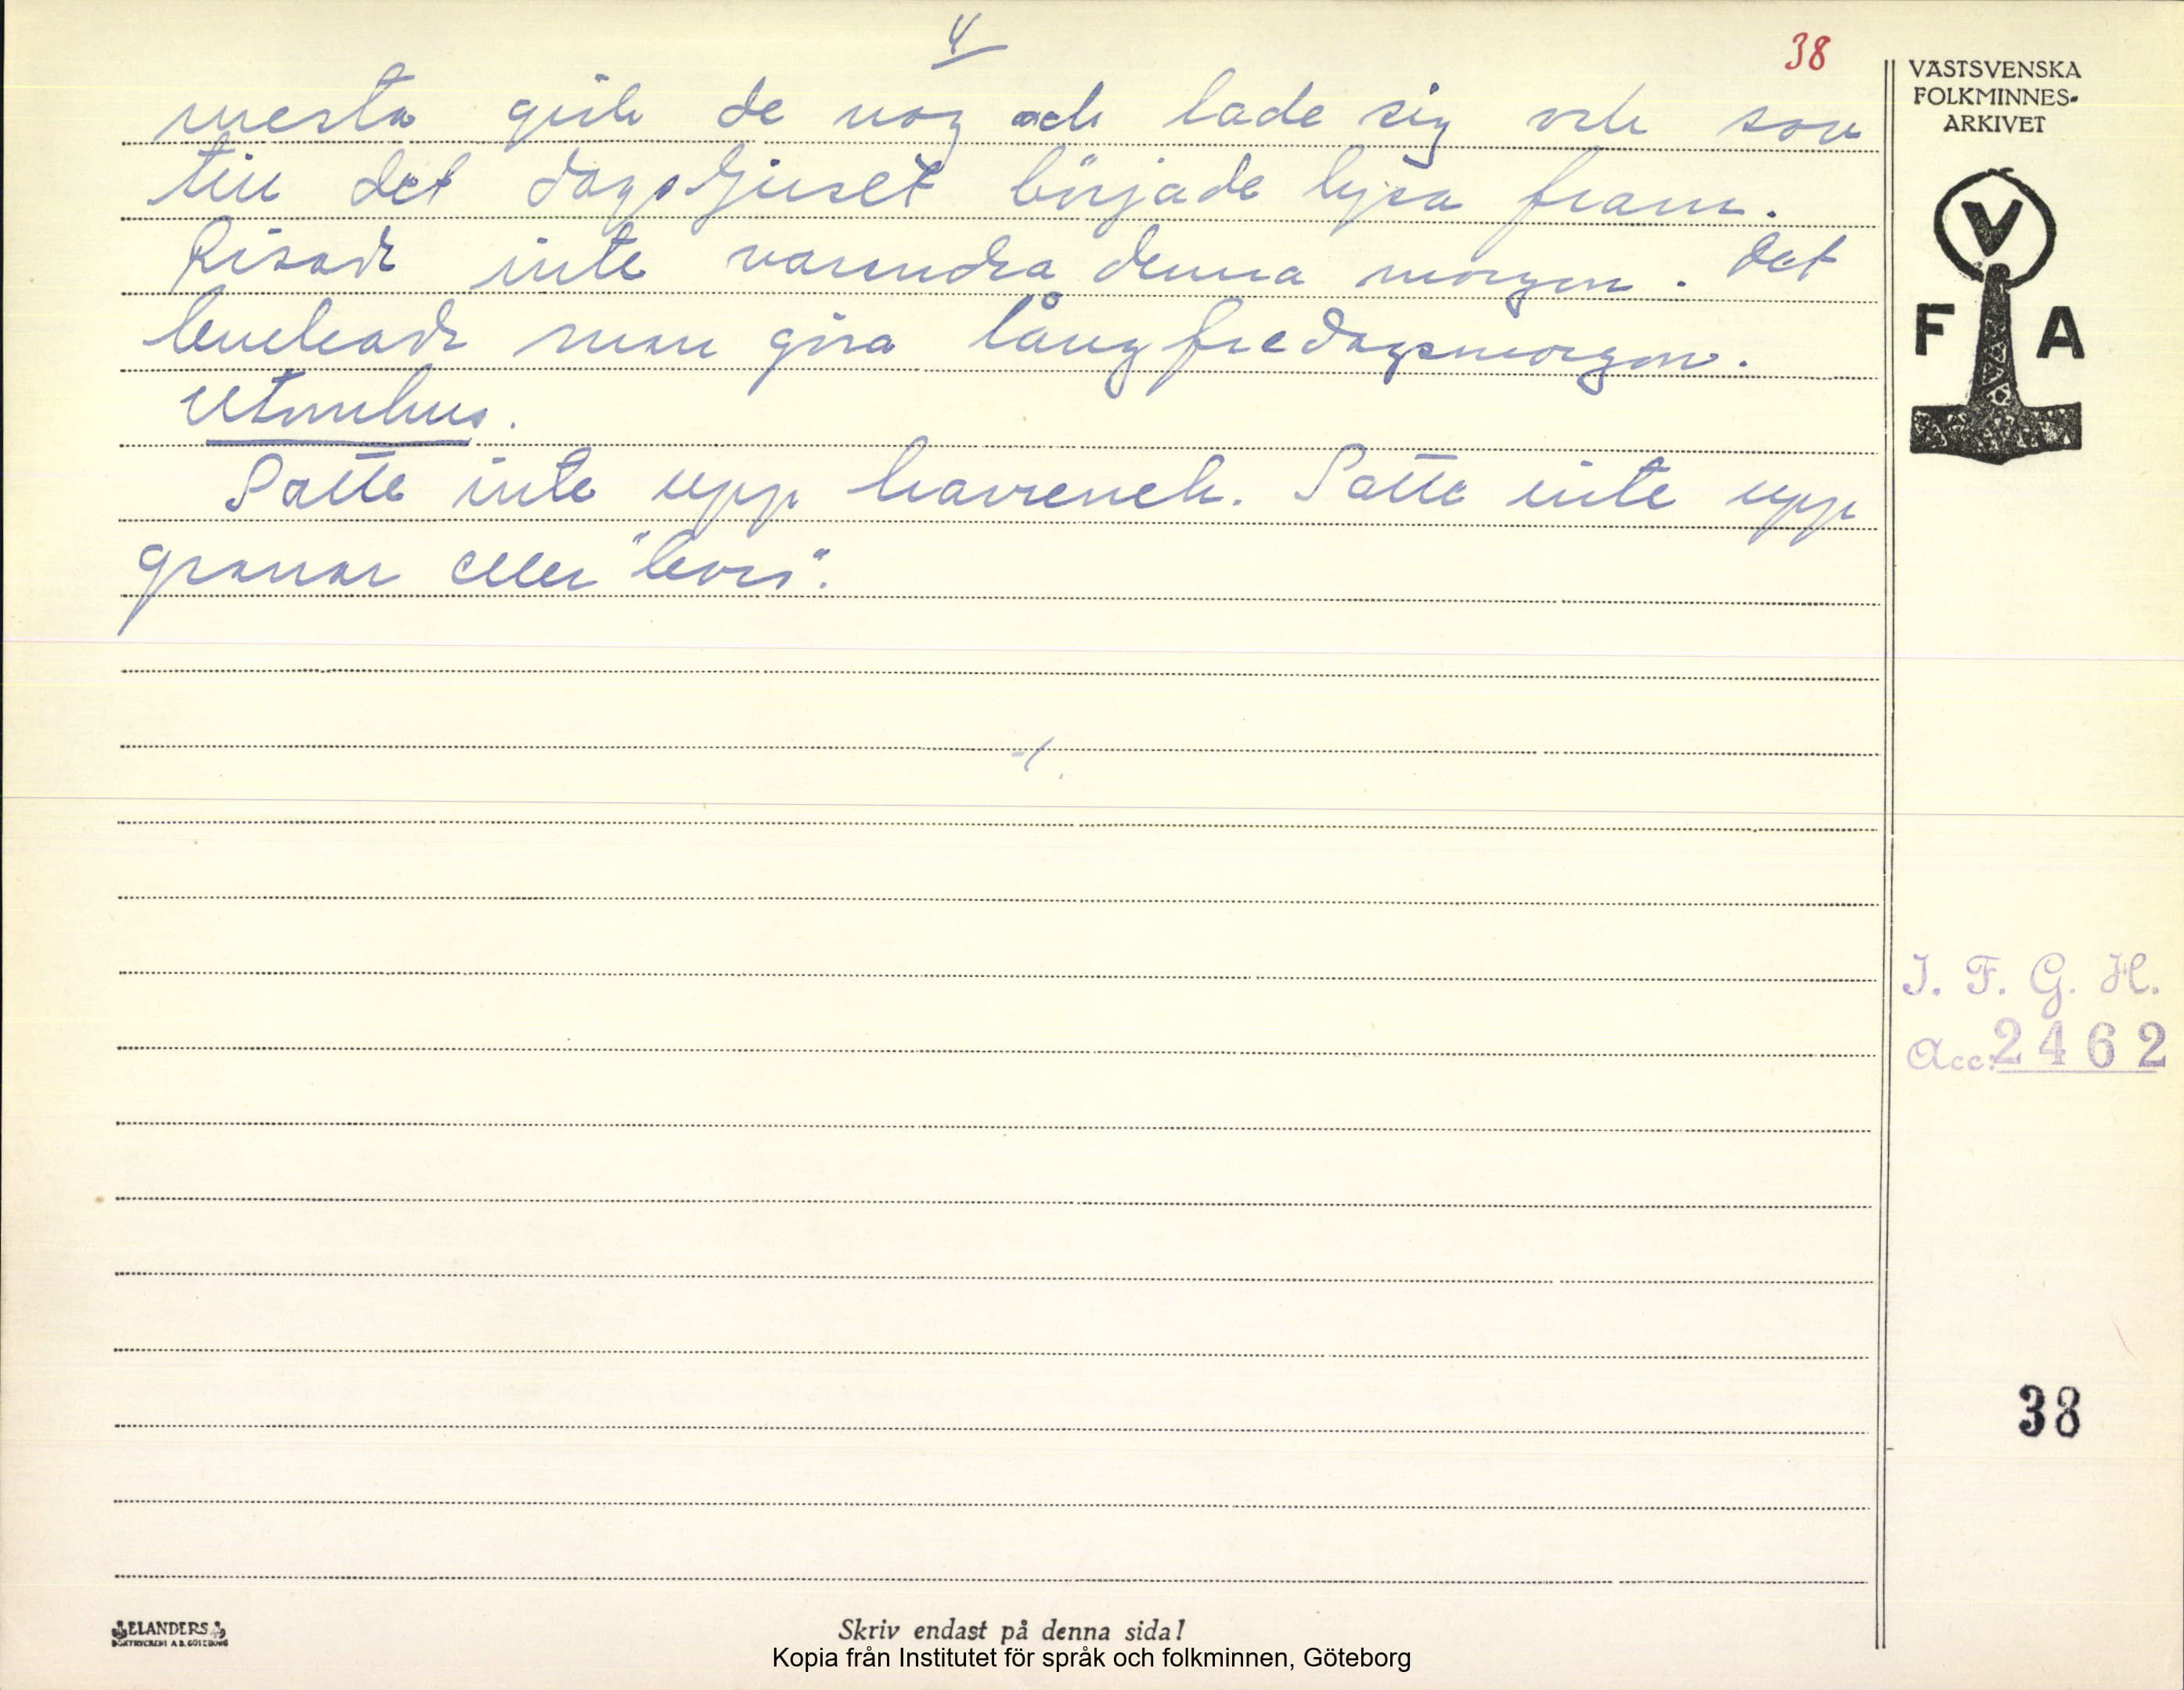 4
38
mesta gick de nog och lade sig och sov
till det dagsljuset började lysa fram.
Risade inte varandra denna morgon. Det
brukade man göra långfredagsmorgon.
Utomhus.
Satte inte upp havrenek. Satte inte upp
granar eller "levris".
VÄSTSVENSKA
FOLKMINNES-
ARKIVET
V
F A
I. F. G. H.
Acc. 2462
38
ELANDERS
BOKTRYCKERI A.B. GÖTEBORG
Skriv endast på denna sida!
Kopia från Institutet för språk och folkminnen, Göteborg